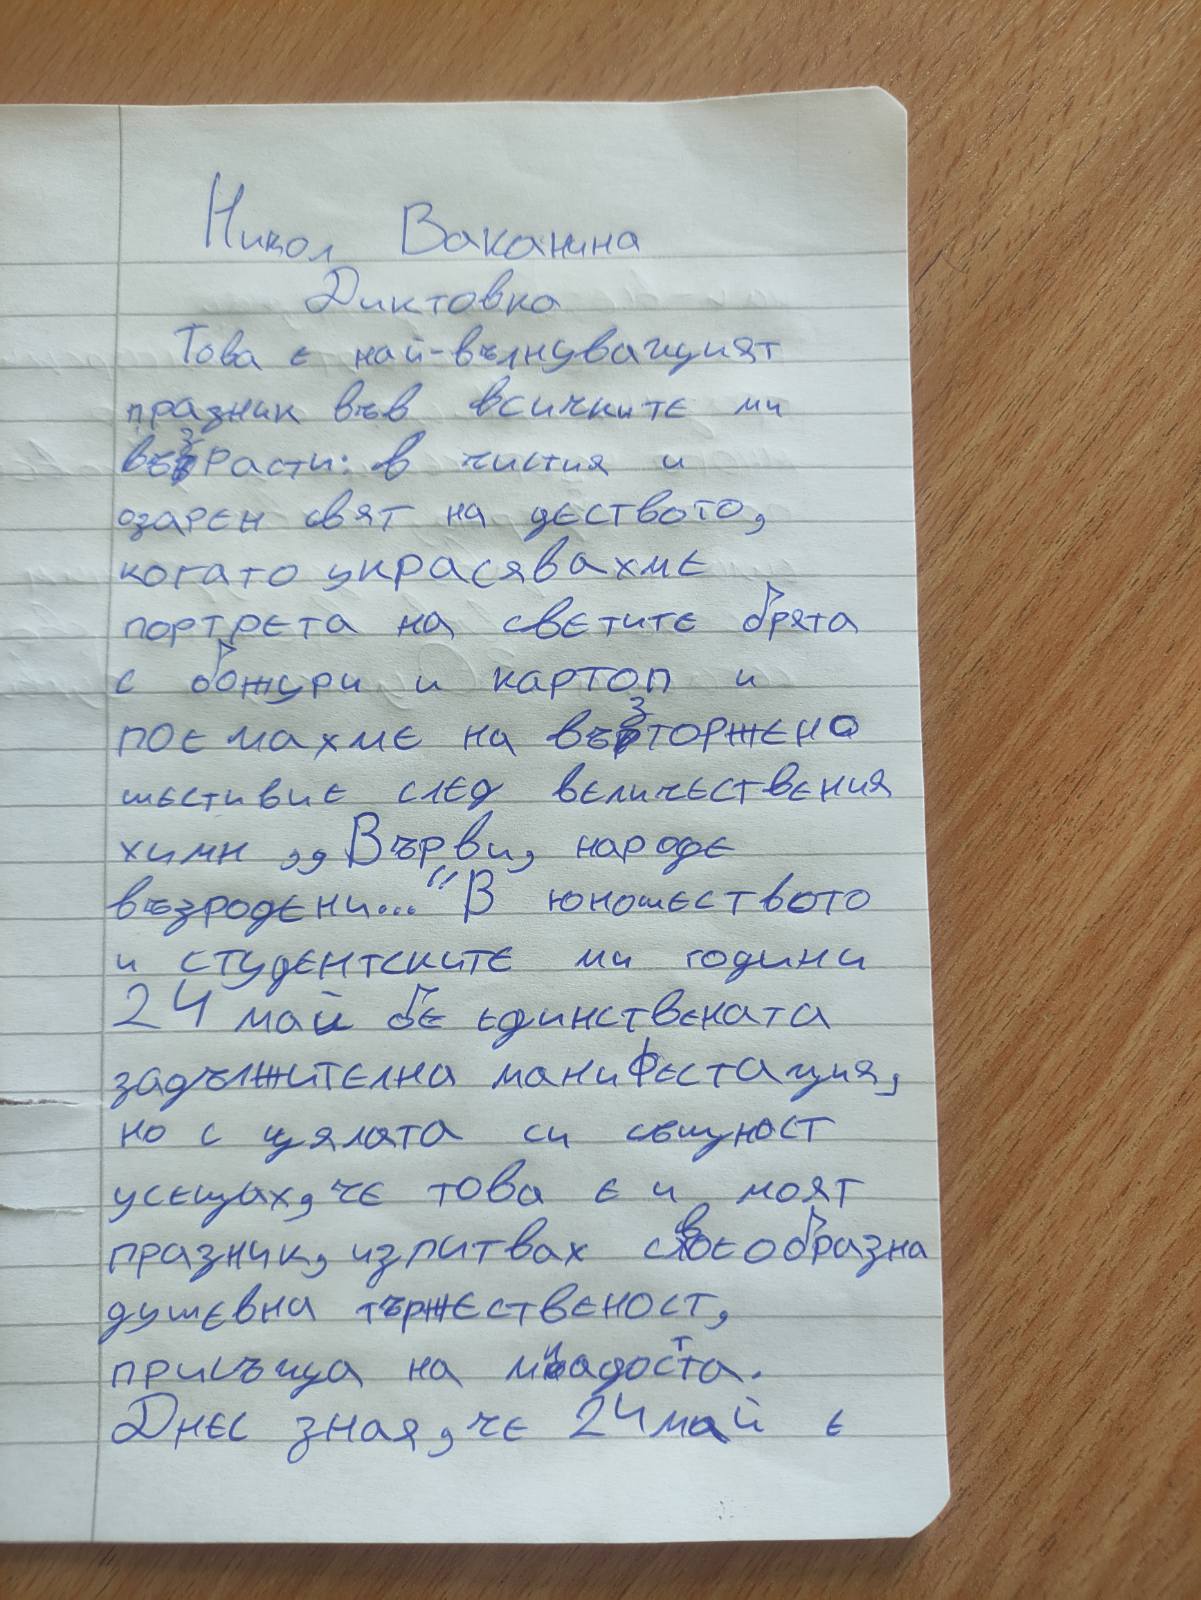 Никол Ваканина
Диктовка
Това е най-вълнуващият
празник във всичките ми
възрасти: в чистия и
озарен свят на деството,
когато украсявахме
портрета на светите брята
с божури и картоп и
поемахме на възторжено
шестивие след величествения
химн ,,Върви, народе
възродени..." В юношеството
и студентските ми години
24 май бе единствената
задължителна манифестация,
но с цялата си същност
усещах, че това е и моят
празник, изпитвах своеобразна
душевна тържественост,
присъща на младостта.
Днес зная, че 24 май е